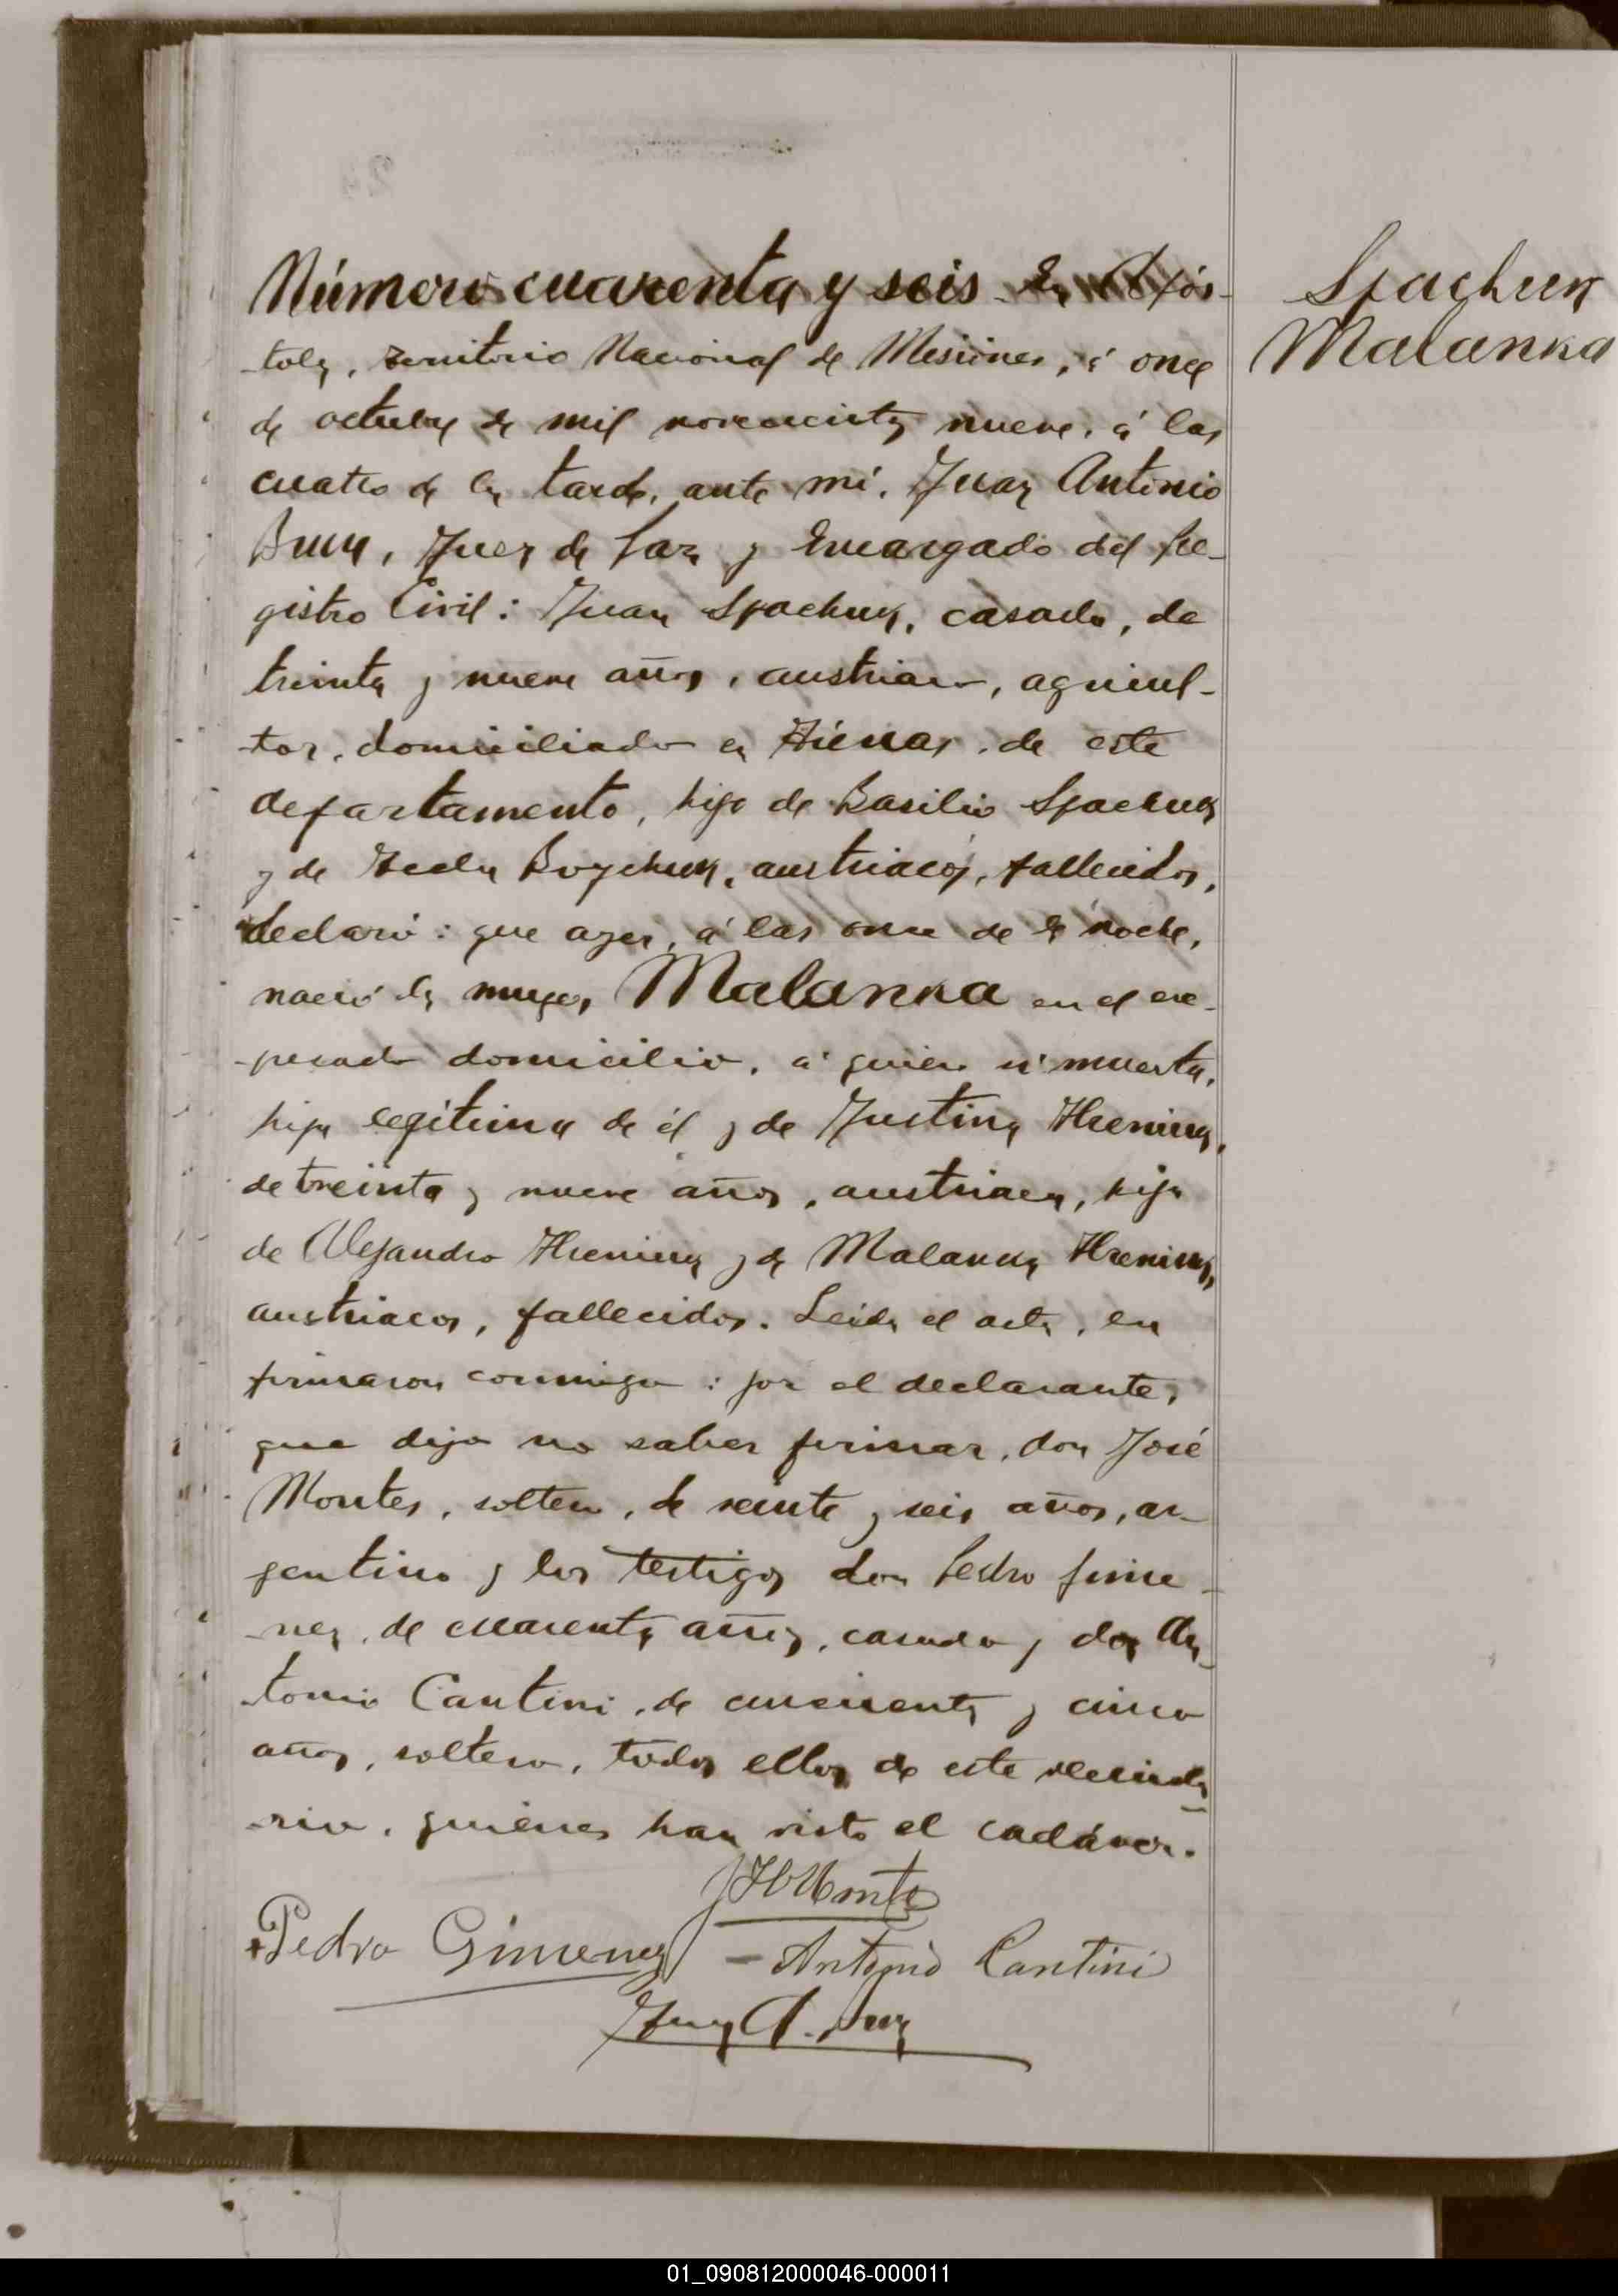 Número cuarenta y seis. En Após-
Spachuk
Malanka
toles, Territorio Nacional de Misiones, á once
de octubre de mil novecientos nueve, á las
cuatro de la tarde, ante mí, Juan Antonio
Juez de Paz y Encargado del Re-
gistro Civil: Juan Spachuk, casado, de
treinta y nueve años, austriaco, agricul-
tor, domiciliado en de este
departamento, hijo de Basilio Spachuk
y de Tecla Boychuk, austriacos, fallecidos,
declaró: que ayer, á las once de la noche,
nació la mujer Malanka en el ex-
presado domicilio, á quien ví muerta,
hija legítima de él y de Justina
de treinta y nueve años, austriaca, hija
de Alejandro y de Malanka
austriacos, fallecidos. Leída el acta, la
firmaron conmigo: por el declarante,
que dijo no saber firmar, don José
Montes, soltero, de veinte y seis años, ar-
gentino y los testigos don Pedro Jime-
nez, de cuarenta años, casado y don An-
tonio Cantini, de cincuenta y cinco
años, soltero, todos ellos de este vecinda-
rio, quienes han visto el cadáver.
Pedro Gimenez
- Antonio Cantini
Juan A.
01_090812000046-000011